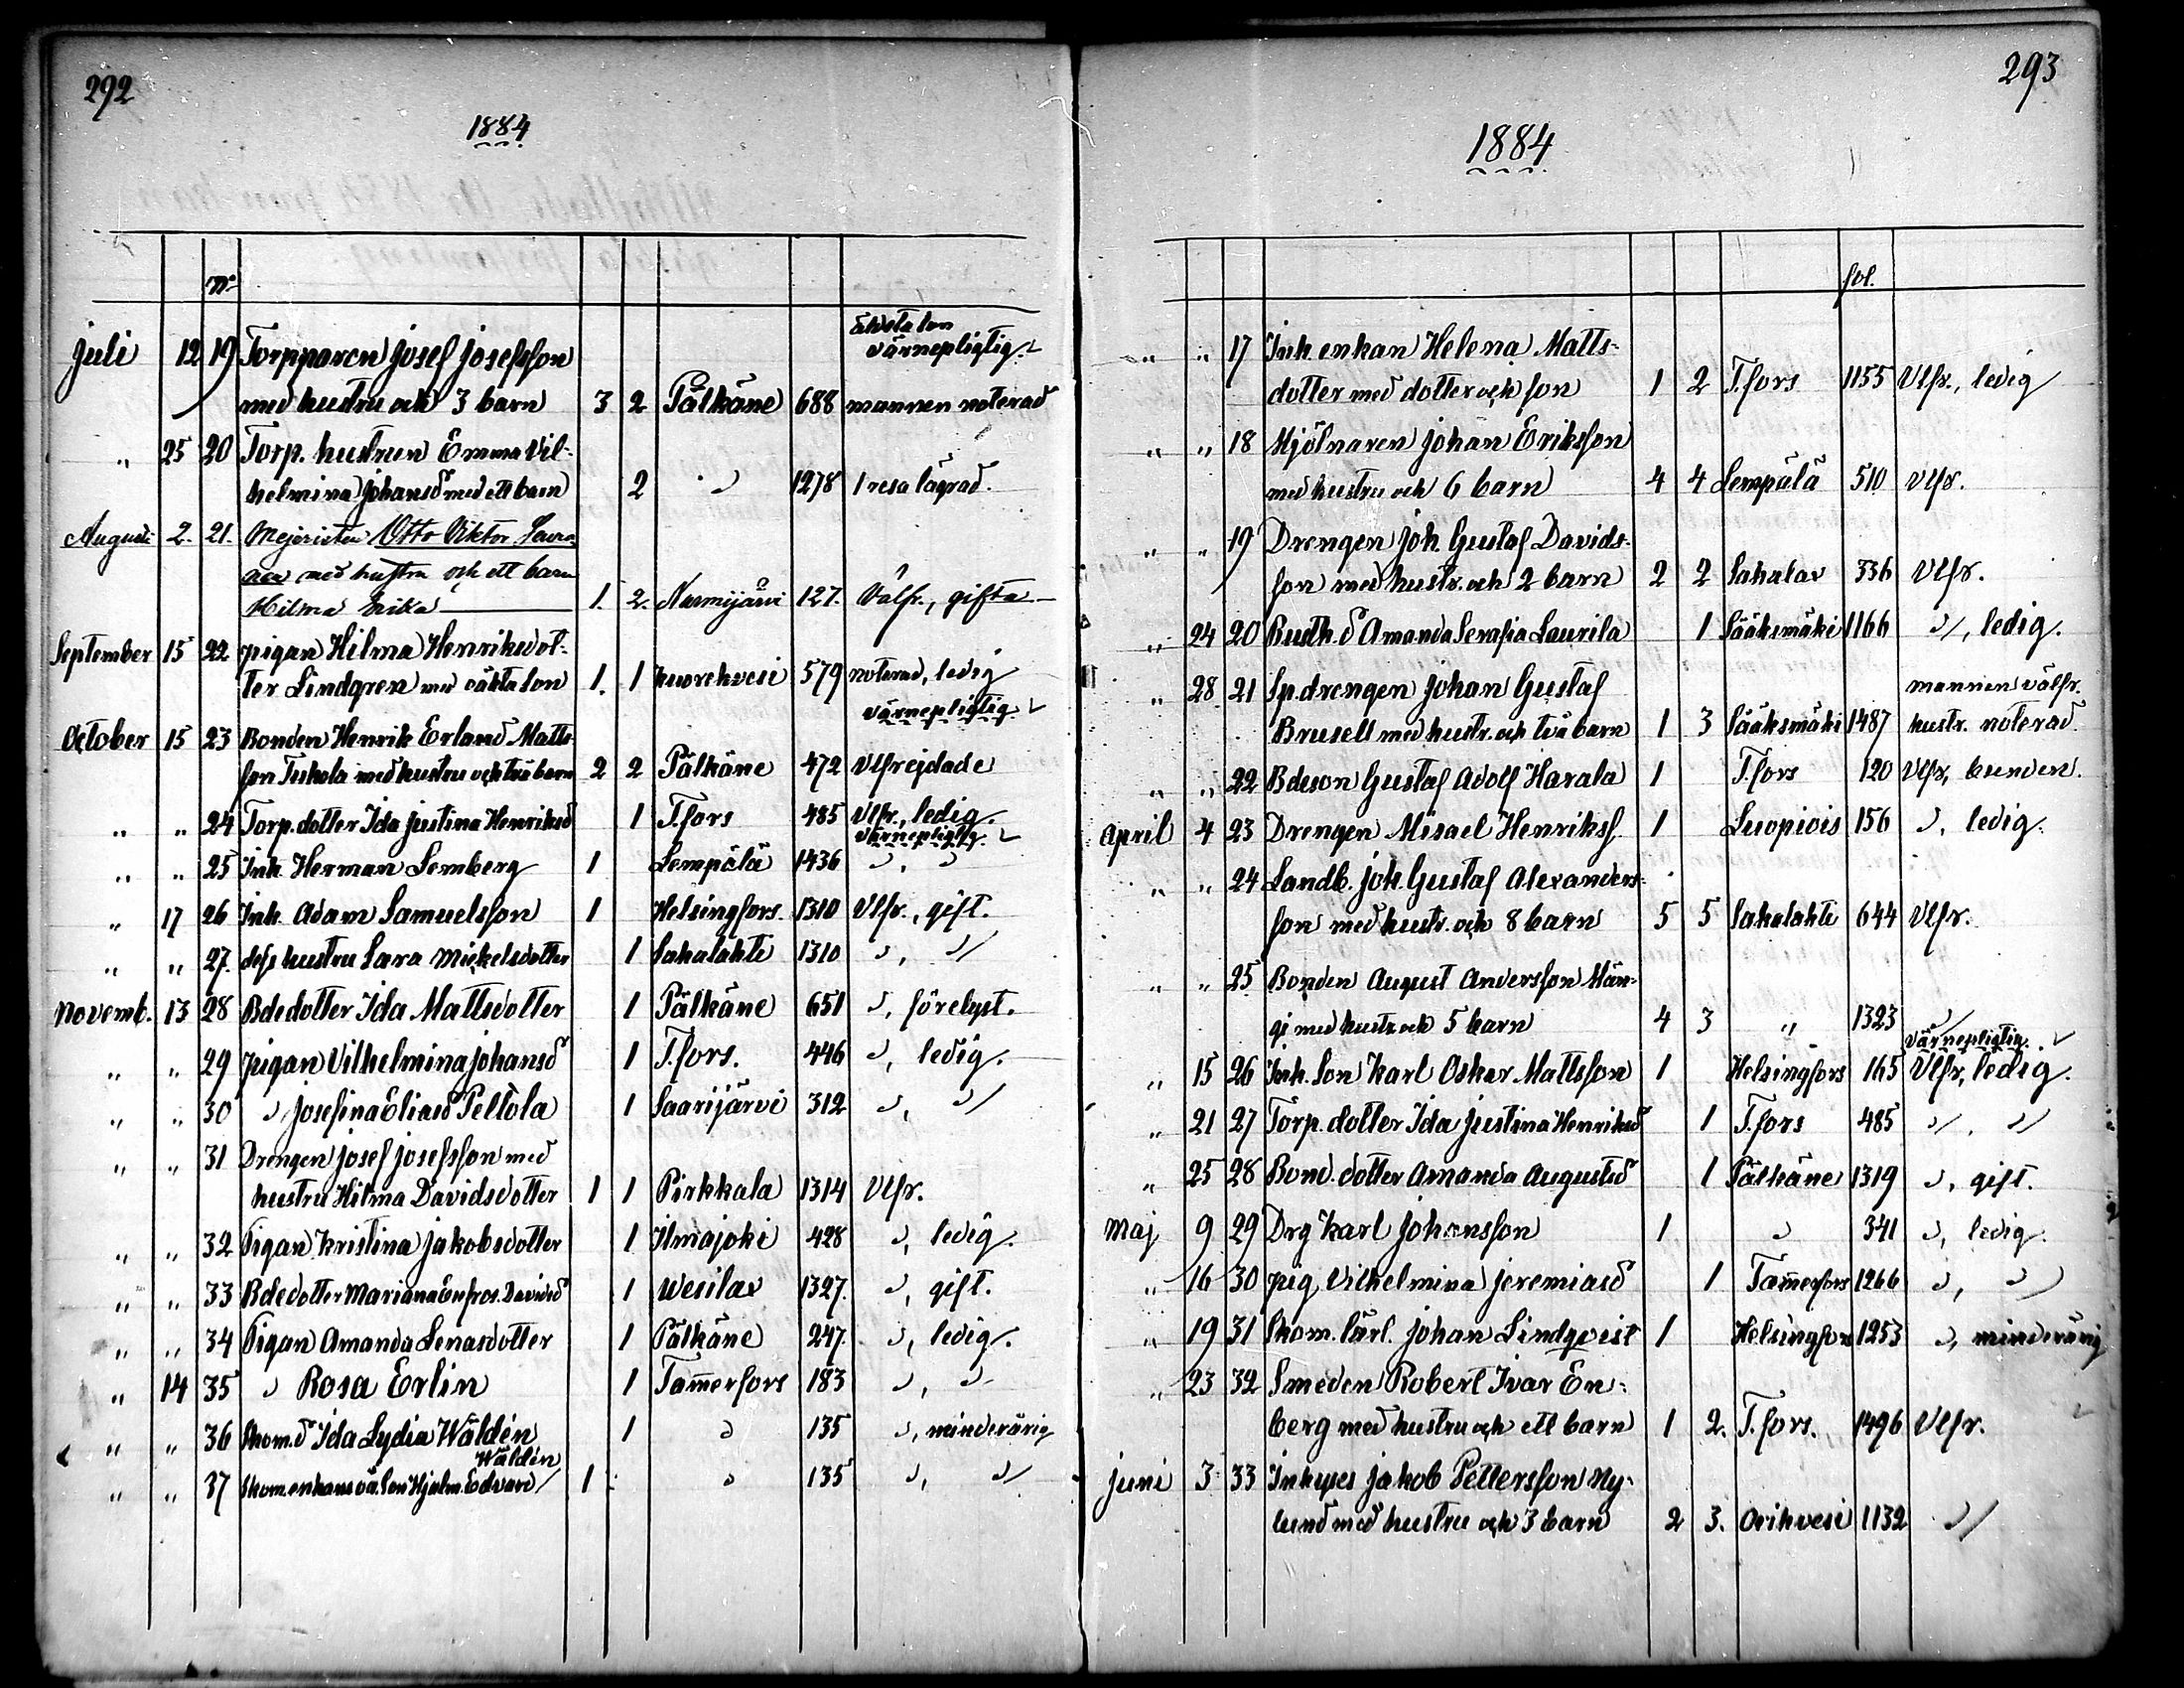 292
1884
No
äldsta son
värnepligtig
Juli 12 19 Torpparen Josef Josefsson
med hustru och 3 barn 3 2 Pälkäne 688 mannen noterad
" 25 20 Torp. hustrun Emma Vil-
helmina Johansd med ett barn 2 " 1278 1 resa lägrad.
Augusti 2. 21. Mejeristen Otto Viktor
med hustru och ett barn
Hilma 1. 2. Nurmijärvi 127. Välfr., gifta
September 15 22 pigan Hilma Henriksdot-
ter Lindqren med oäkta son 1. 1 Kuorehvesi 579 noterad, ledig
värnepligtig
October 15 23 Bonden Henrik Erland Matts-
son Tuhola med hustru och två barn 2 2 Pälkäne 472 Vlfrejdade
" " 24 Torp. dotter Ida Justina Henriksd 1 T.fors 485 Vlfr., ledig.
värnepligtig
" " 25 Inh. Herman Lemberg 1 Lempälä 1436 ", "
" 17 26 Inh. Adam Samuelsson 1 Helsingfors. 1310 Vlfr., gift.
" " 27. dess hustru Sara Mickelsdotter 1 Sahalahti 1310 ", "
Novemb. 13 28 Bdedotter Ida Mattsdotter 1 Pälkäne 651 ", förelyst.
" " 29 pigan Vilhelmina Johansd 1 T.fors. 446 ", ledig.
" " 30 " Josefina Eliasd Peltola 1 Saarijärvi 312 ", "
" " 31 Drengen Josef Josefsson med
hustru Hilma Davidsdotter 1 1 Pirkkala 1314 Vlfr.
" " 32 Pigan Kristina Jakobsdotter 1 Ilmajoki 428 ", ledig.
" " 33 Bdedotter Mariana Eufros. Davidsd 1 Wesilax 1327. ", gift.
" " 34 Pigan Amanda Lenasdotter 1 Pälkäne 247. ", ledig.
" 14 35 " Rosa Erlin 1 Tam̄erfors 183 ", "
" " 36 Skom.d Ida Lydia Wäldén 1 " 135 ", minderårig
Wäldén
" " 37 Skom.enkans oä. son Hjalm. Edvard 1 " 135 ", "
293
1884
fol.
" " 17 Inh. enkan Helena Matts-
dotter med dotter och son 1 2 T.fors 1155 Vlfr., ledig
" " 18 Mjölnaren Johan Eriksson
med hustru och 6 barn 4 4 Lempälä 510 Vlfr.
" " 19 Drengen Joh. Gustaf Davids-
son med hustr. och 2 barn 2 2 Sahalax 336 Vlfr.
" 24 20 Amanda Serafia Laurila 1 Sääksmäki 1166 ", ledig.
" 28 21 Sp.drengen Johan Gustaf mannen välfr.
Brusell med hustr. och två barn 1 3 Sääksmäki 1487 hustr. noterad.
" " 22 Bdeson Gustaf Adolf Harala 1 T.fors 120 Vlfr, bunden.
April 4 23 Drengen Misael Henrikss 1 Luopiois 156 ", ledig.
" " 24 Landb. Joh. Gustaf Alexanders-
son med hustr. och 8 barn 5 5 Sahalahti 644 Vlfr.
" " 25 Bonden August Andersson Män-
gi med hustr. och 5 barn 4 3 " 1323 "
värnepligtig.
" 15 26 Inh. Son Karl Oskar Mattsson 1 Helsingfors 165 Vlfr, ledig.
" 21 27 Torp. dotter Ida Justina Henriksd 1 T.fors 485 ", "
" 25 28 Bond. dotter Amanda Augustsd 1 Pälkäne 1319 ", gift.
Maj 9 29 Drg Karl Johansson 1 " 341 ", ledig.
" 16 30 pig. Vilhelmina Jeremiasd 1 Tam̄erfors 1266 ", "
" 19 31 Skom. lärl. Johan Lindqvist 1 Helsingfors 1253 ", minderårig
" 23 32 Smeden Robert Ivar En-
berg med hustru och ett barn 1 2. T.fors. 1496 Vlfr.
Juni 3 33 Inhyses Jakob Pettersson Ny-
lund med hustru och 3 barn 2 3. Orihvesi 1132 "